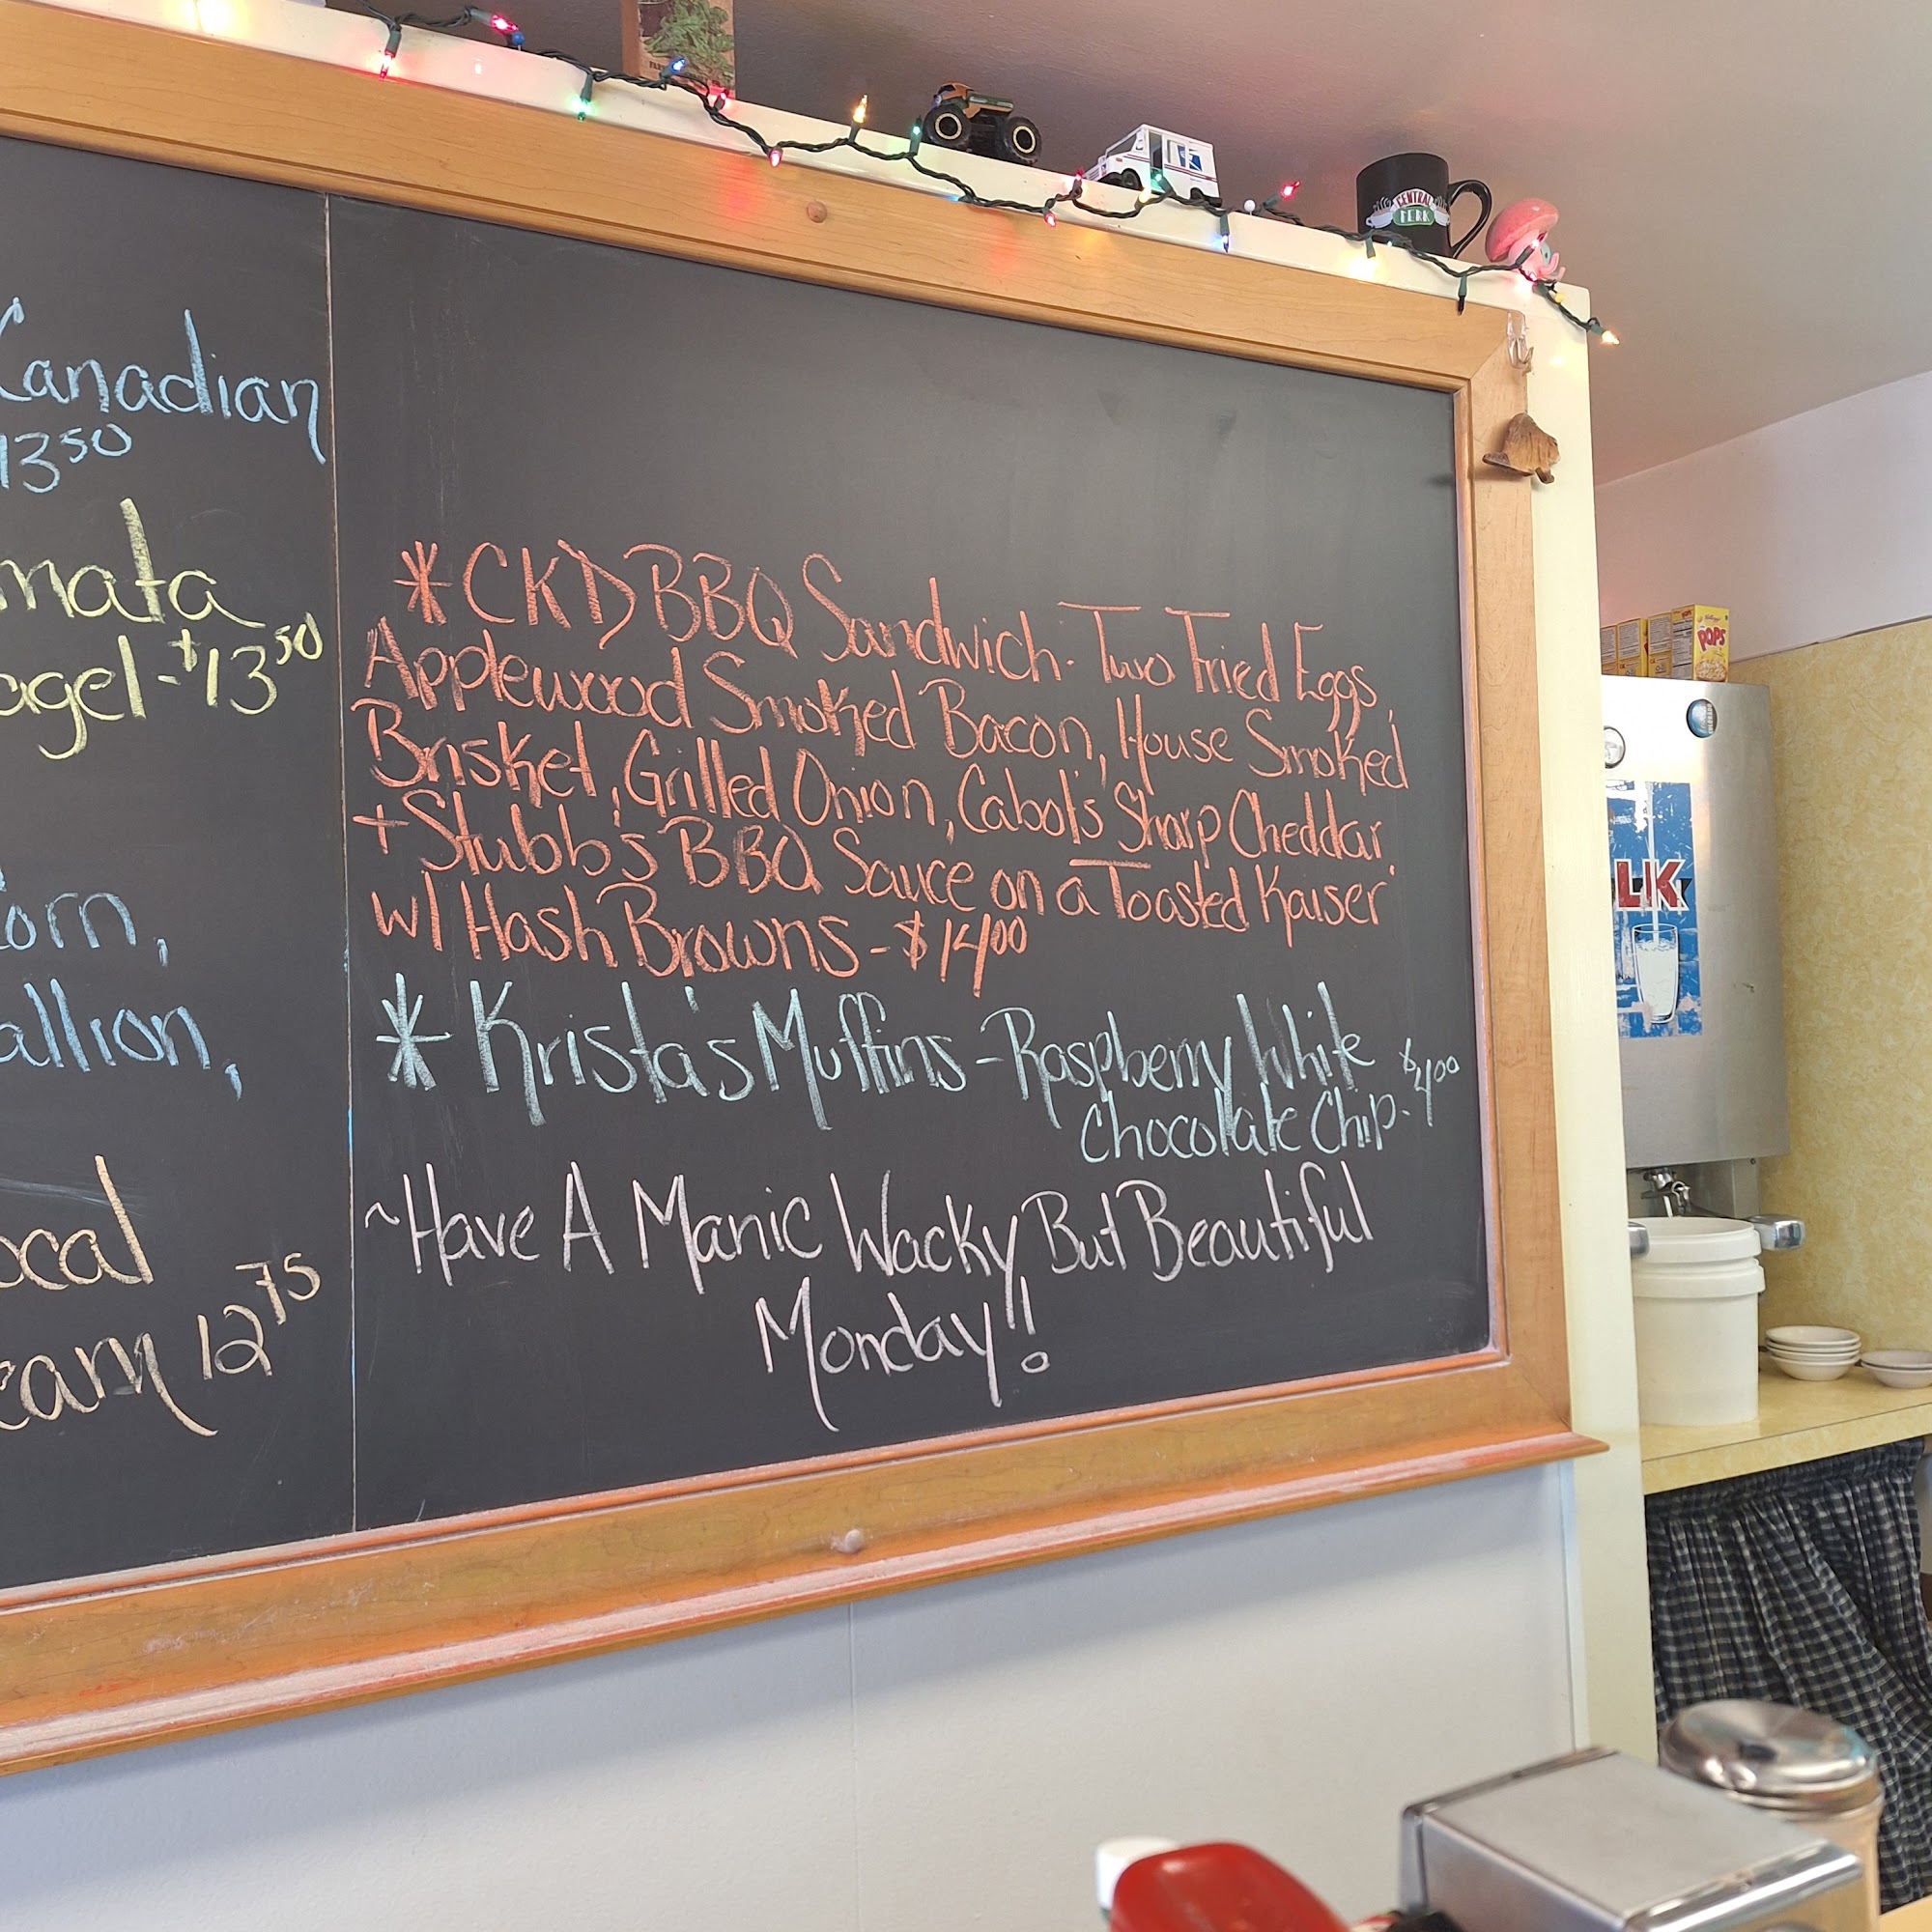 Canadian
13⁵⁰
mata
agel - $13⁵⁰
orn,
allion,
ocal
eam 12⁷⁵
* CKD BBQ Sandwich - Two Fried Eggs,
Applewood Smoked Bacon, House Smoked
Brisket, Grilled Onion, Cabot's Sharp Cheddar,
+ Stubb's BBQ Sauce on a Toasted Kaiser
w/ Hash Browns - $14⁰⁰
* Krista's Muffins - Raspberry White
Chocolate Chip - $4⁰⁰
~Have A Manic Wacky But Beautiful
Monday!!
CENTRAL
PERK
POPS
LK